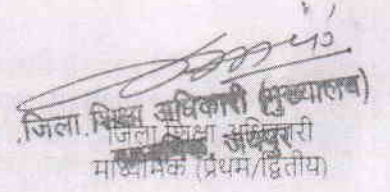 जिला शिक्षा अधिकारी (मुख्यालय)
जिला शिक्षा अधिकारी
माध्यमिक (प्रथम/द्वितीय)